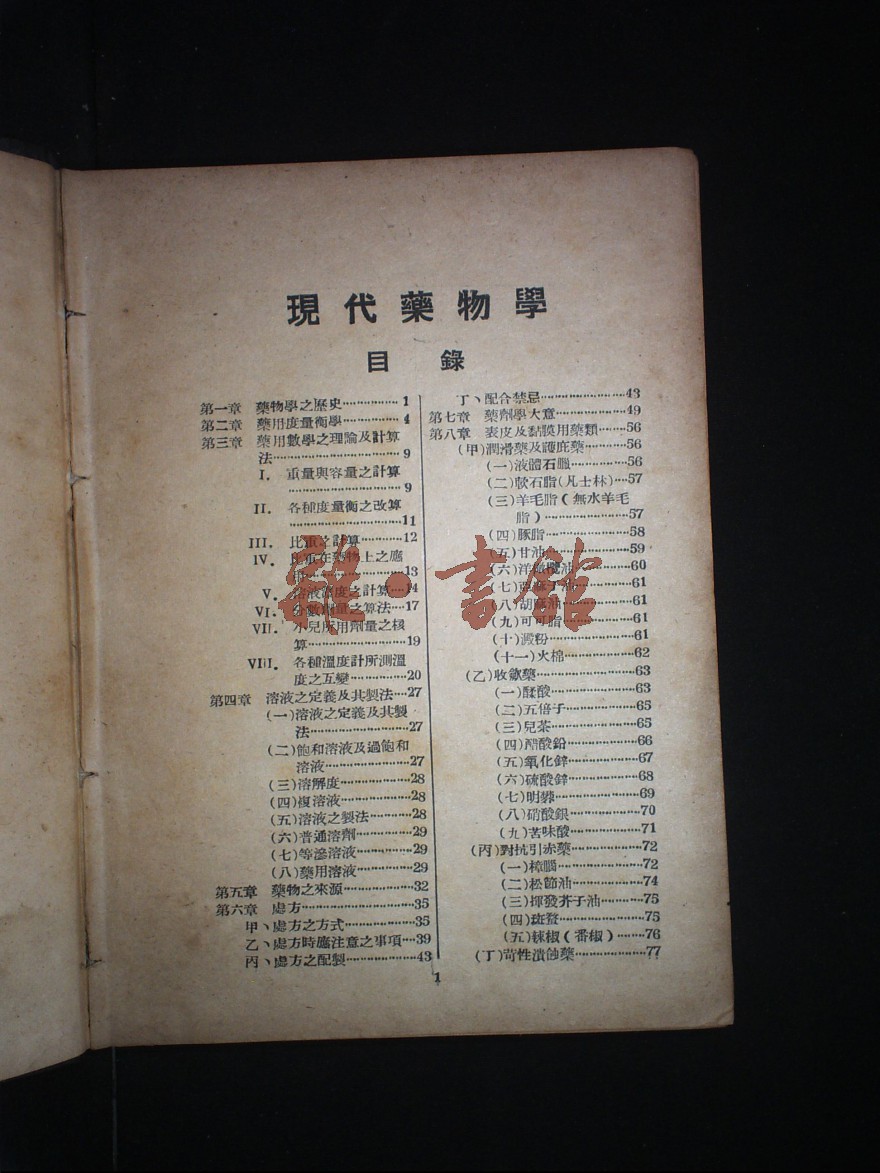 現代藥物學
目錄
第一章 藥物學之歷史……………1
第二章 藥用度量衡學……………4
第三章 藥用數學之理論及計算
法……………9
I. 重量與容量之計算
……………9
II. 各種度量衡之改算
……………11
III. 比重之計算…………12
IV. 比重在藥物上之應
用……………13
V. 溶液濃度之計算…14
VI. 分數劑量之算法…17
VII. 小兒所用劑量之核
算……………19
VIII. 各種溫度計所測溫
度之互變…………20
第四章 溶液之定義及其製法…27
(一)溶液之定義及其製
法……………27
(二)飽和溶液及過飽和
溶液……………27
(三)溶解度……………28
(四)複溶液……………28
(五)溶液之製法………28
(六)普通溶劑…………29
(七)等滲溶液…………29
(八)藥用溶液…………29
第五章 藥物之來源……………32
第六章 處方……………35
甲、處方之方式……………35
乙、處方時應注意之事項…39
丙、處方之配製……………43
丁、配合禁忌……………43
第七章 藥劑學大意……………49
第八章 表皮及黏膜用藥類……56
(甲)潤滑藥及護庇藥…………56
(一)液體石臘……………56
(二)軟石脂(凡士林)…57
(三)羊毛脂(無水羊毛
脂)……………57
(四)豚脂……………58
(五)甘油……………59
(六)洋橄欖油…………60
(七)蓖麻子油…………61
(八)胡麻油……………61
(九)可可脂……………61
(十)澱粉……………61
(十一)火棉……………62
(乙)收歛藥……………63
(一)鞣酸……………63
(二)五倍子……………65
(三)兒茶……………65
(四)醋酸鉛……………66
(五)氧化鋅……………67
(六)硫酸鋅……………68
(七)明礬……………69
(八)硝酸銀……………70
(九)苦味酸……………71
(丙)對抗引赤藥……………72
(一)樟腦……………72
(二)松節油……………74
(三)揮發芥子油………75
(四)斑蝥……………75
(五)辣椒(番椒)……76
(丁)苛性潰蝕藥……………77
1
書館